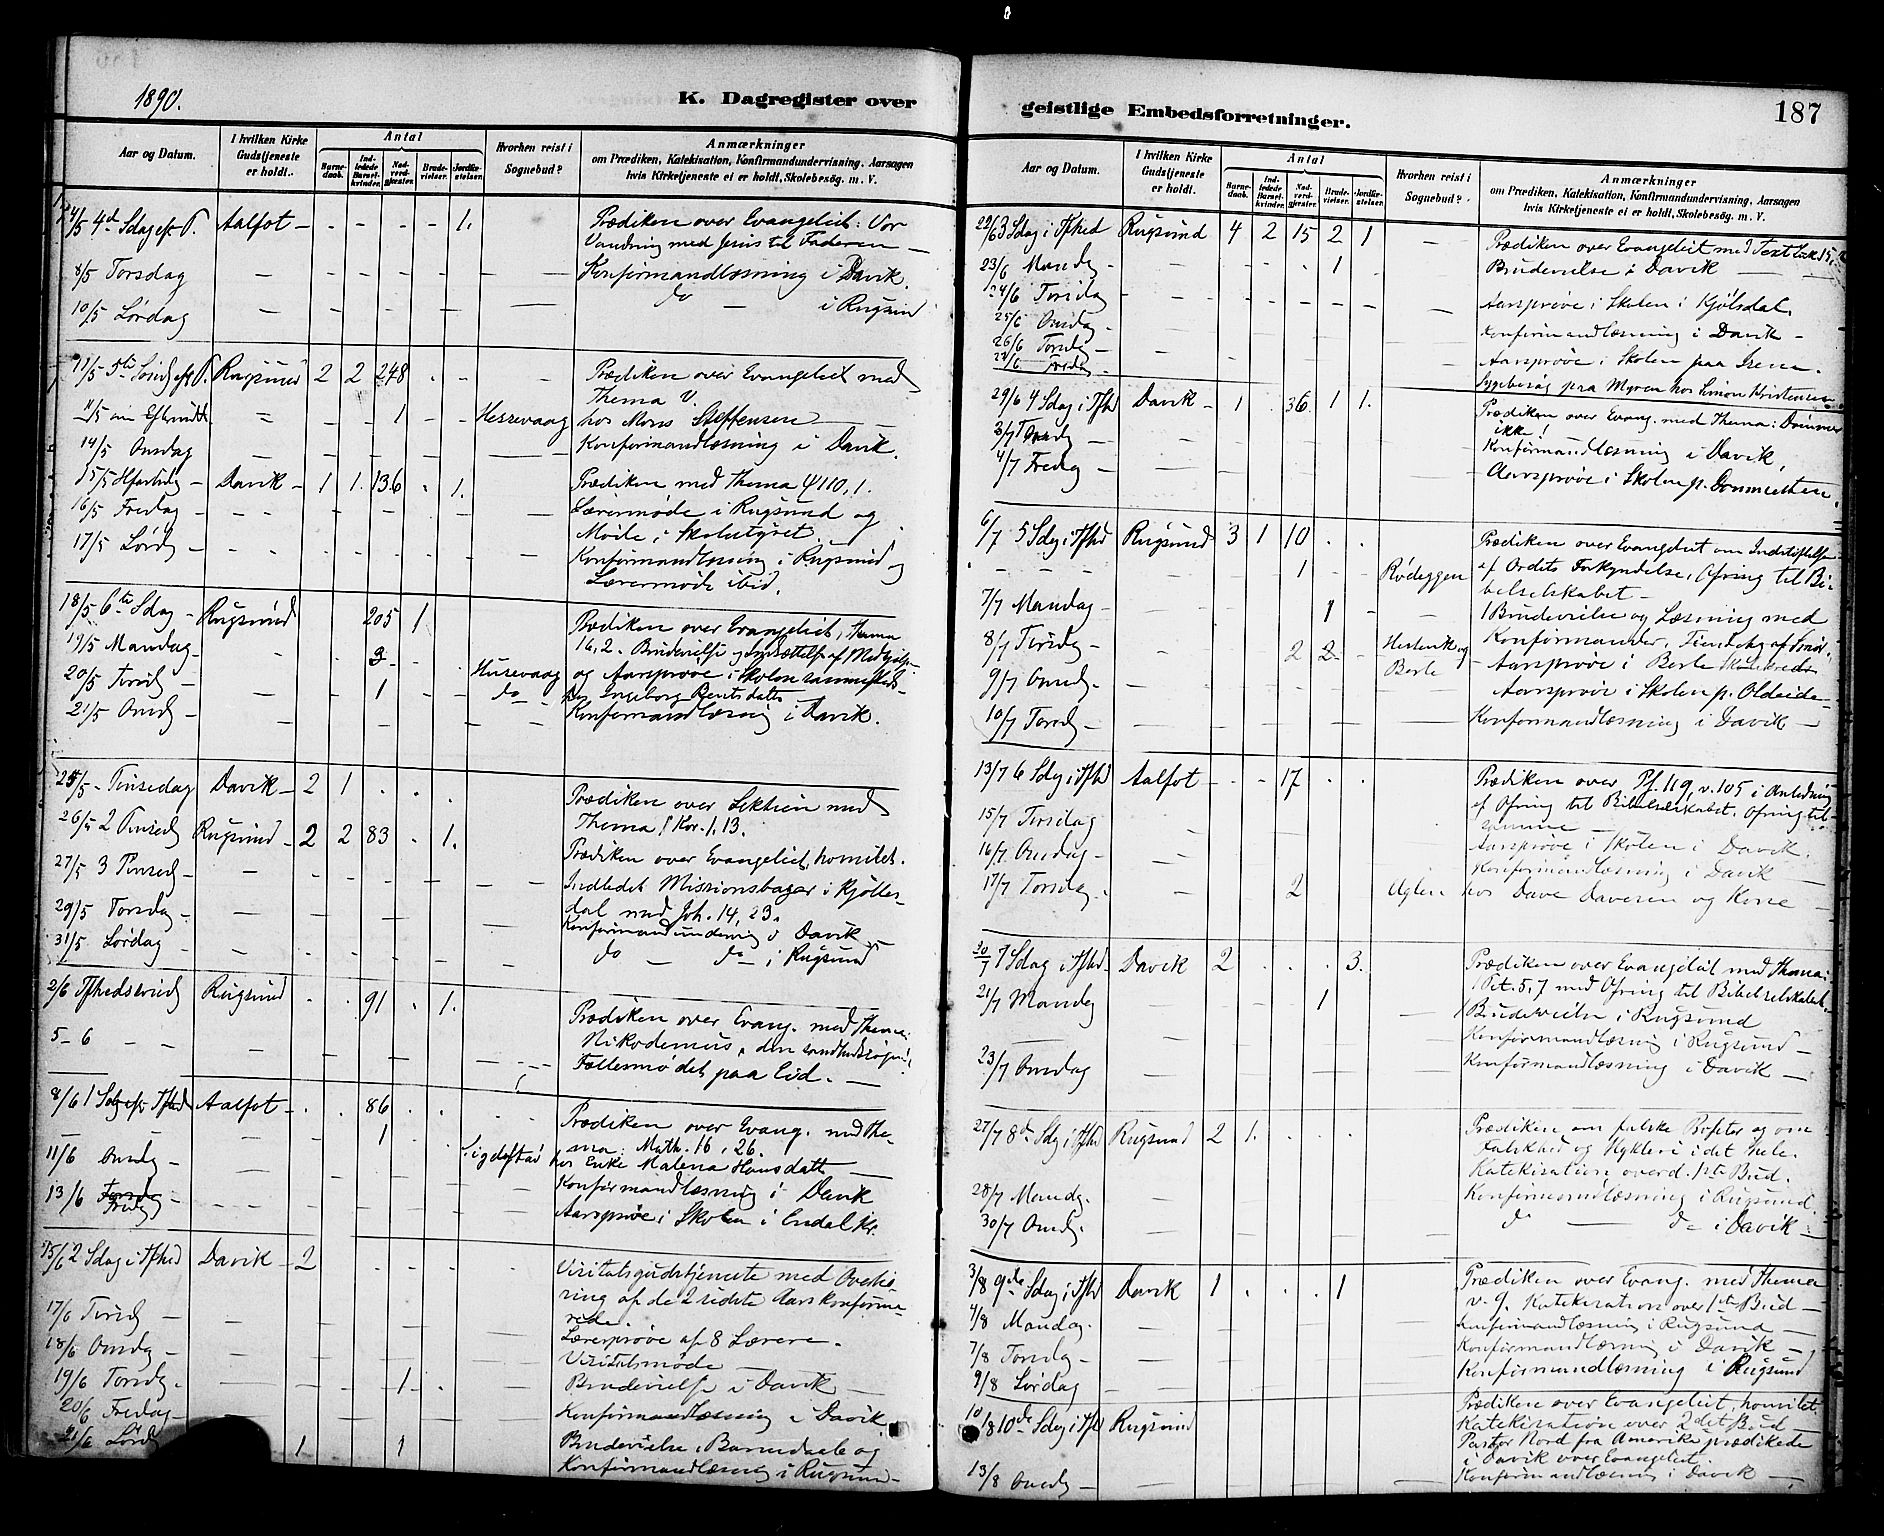 1890.
K. Dagregister over
Aar og Datum.
I hvilken Kirke Gudstjeneste er holdt.
Antal
Barnedaab.
Indledede Barselkvinder.
Nadverdgjester.
Brudevielser.
Jordfæstelser.
Hvorhen reist i Sognebud?
Anmærkninger
om Prædiken, Katekisation, Konfirmandundervisning, Aarsagen
hvis Kirketjeneste ei er holdt, Skolebesøg. m. V.
4/5 4d Sdag eft P. Aalfot - - - - 1. Prædiken over Evangeliet: Vor
Vandring med Jesus til Faderen —
8/5 Torsdag Konfirmandlæsning i Davik.
10/5 Lørdag do — i Rugsund
11/5 5te Sønd eft P. Rugsund 2 2 248 - - Prædiken over Evangeliet med
Thema V.
11/5 om Efterm 1 Hessevaag hos Mons Steffensen
14/5 Onsdag Konfirmandlæsning i Davik.
15/5 Davik - 1 1. 136 . 1. Prædiken med Thema ψ 110, 1.
16/5 Fredag - Lærermøde i Rugsund og
17/5 Lørdg - Møde i Skolestyret
Konfirmandlæsning i Rugsund og
Lærermøde ibid.
18/5 6te Sdag - Rugsund 205 1 Prædiken over Evangeliet, Thema
19/5 Mandag - 3 16,2. Brudevielse og
20/5 Tirsd - 1 Husevaag og Aarsprøve i Skolen sammesteds
do hos Ingeborg Berntsdatt
21/5 Onsdg Konfirmandlæsning i Davik.
25/5 - Pinsedag Davik - 2 1 . . . Prædiken over Lektien med
Thema 1 Kor. 1, 13.
26/5 2 Pinsedg Rugsund - 2 2 83 . 1. Prædiken over Evangeliet, homilet.
27/5 3 Pinsed - Indledet Missionsbazar i Kjølles-
dal med Joh. 14, 23.
29/5 Torsdag - i Davik
31/5 Lørdag - do — do i Rugsund
2/6 Rugsund . . 91 . 1. Prædiken over Evang. med Thema:
Nikodemus, den
5-6 Fællesmødet paa Eid. —
8/6 1 Sdg eft Aalfot - . . 86 . . Prædiken over Evang. med The-
1 ma: Math. 16, 26.
hos Enke Malena Hansdatt
11/6 Onsdg - Konfirmandlæsning i Davik
13/6 Torsdg - Fredg Aarsprøve i Skolen i Endal Kr.
15/6 2 Sdag i Davik - 2 Visitatsgudstjeneste med Overhø-
ring af de 2 sidste Aars konfirme-
rede.
17/6 Tirsd - Lærerprøve af 8 Lærere -
18/6 Onsdg - Visitatsmøde —
19/6 Torsdg. 1 Brudevielse i Davik —
20/6 Fredag - Konfirmandlæsning i Davik
21/6 Lørd 1 1 Brudevielse, Barnedaab og
Konfirmandlæsning i Rugsund -
geistlige Embedsforretninger.
187
Aar og Datum.
I hvilken Kirke Gudstjeneste er holdt.
Antal
Barnedaab.
Indledede Barselkvinder.
Nadverdgjester.
Brudevielser.
Jordfæstelser.
Hvorhen reist i Sognebud?
Anmærkninger
om Prædiken, Katekisation, Konfirmandundervisning, Aarsagen
hvis Kirketjeneste ei er holdt, Skolebesøg. m. V.
22/6 3 Sdag i Rugsund 4 2 15 2 1 - Prædiken over Evangeliet med Text Luk 15,
23/6 Mandg - 1 Brudevielse i Davik
24/6 Tirsdag Aarsprøve i Skolen i Kjølsdal.
25/6 Onsdag Konfirmandlæsning i Davik -
26/6 Torsdg - Aarsprøve i Skolen paa
Sygebesøg paa Myren hos Simon Kristensen
29/6 4 Sdag i Davik - 1 . 36 1 1. Prædiken over Evang. med Thema: Dømmer
ikke!
Konfirmandlæsning i Davik,
4/7 Fredg - Aarsprøve i Skolen p.
6/7 5 Sdg i Rugsund 3 1 10 . . Prædiken over Evangeliet om Indstiftelse
1 Rødeggen af Ordets Forkyndelse, Ofring til Bi-
belselskabet -
7/7 Mandag - 1 1 Brudevielse og Læsning med
8/7 Tirsdg - 2 2 - og Berle Konfirmander,
Aarsprøve i Berle Skolekreds
9/7 Onsdg. Aarsprøve i Skolen p. Oldeide -
10/7 Torsdg - Konfirmandlæsning i Davik -
13/7 6 Sdg i Aalfot - . - 17 . . Prædiken over Ps. 119, v. 105 i Anledning
af Ofring til Bibelselskabet. Ofring til-
15/7 Tirsdag Aarsprøve i Skolen i Davik.
16/7 Onsdag - Konfirmandlæsning i Davik -
17/7 Torsdag. 2 hos Dave Davesen og Kone -
20/7 7 Sdag i Davik 2 . . . 3. Prædiken over Evangeliet med Thema:
1 Pet. 5,7 med Ofring til Bibelselskabet.
21/7 Mandag 1 1 Brudevielse i Rugsund
Konfirmandlæsning i Rugsund -
23/7 Onsdag Konfirmandlæsning i Davik -
27/7 8de Sdg i Rugsund 2 1. . . . Prædiken om falske Profeter og om
Falskhed og Hykleri i det hele.
Katekisation over d. 1ste Bud.
28/7 Mandg. Konfirmandlæsning i Rugsund.
30/7 Onsdg. do — do i Davik -
3/8 9de Sdag i Davik 1 . . 1 Prædiken over Evang. med Thema
v. 9. Katekisation over 1ste Bud -
4/8 Mandag. Konfirmandlæsning i Rugsund -
7/8 Torsdg - Konfirmandlæsning i Davik -
9/8 Lørdag Konfirmandlæsning i Rugsund
10/8 10de Sdg i Rugsund Prædiken over Evangeliet, homilet.
Katekisation over 2det Bud
Pastor Nord fra Amerika prædikede
i Davik over Evangeliet.
13/8 Onsdg - Konfirmandlæsning i Davik -